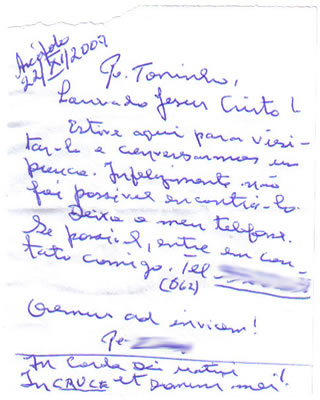 22/XI/2007
Pe. Toninho,
Louvado Jesus Cristo!
Estive aqui para visi-
tar-lo e conversarmos um
pouco. Infelizmente não
foi possível encontrá-lo.
Deixo o meu telefone.
Se possível, entre em con-
tato comigo. Tel
(062)
Oremus ad invicem!
Pe.
In Corda Dei
In CRUCE et Domini mei!